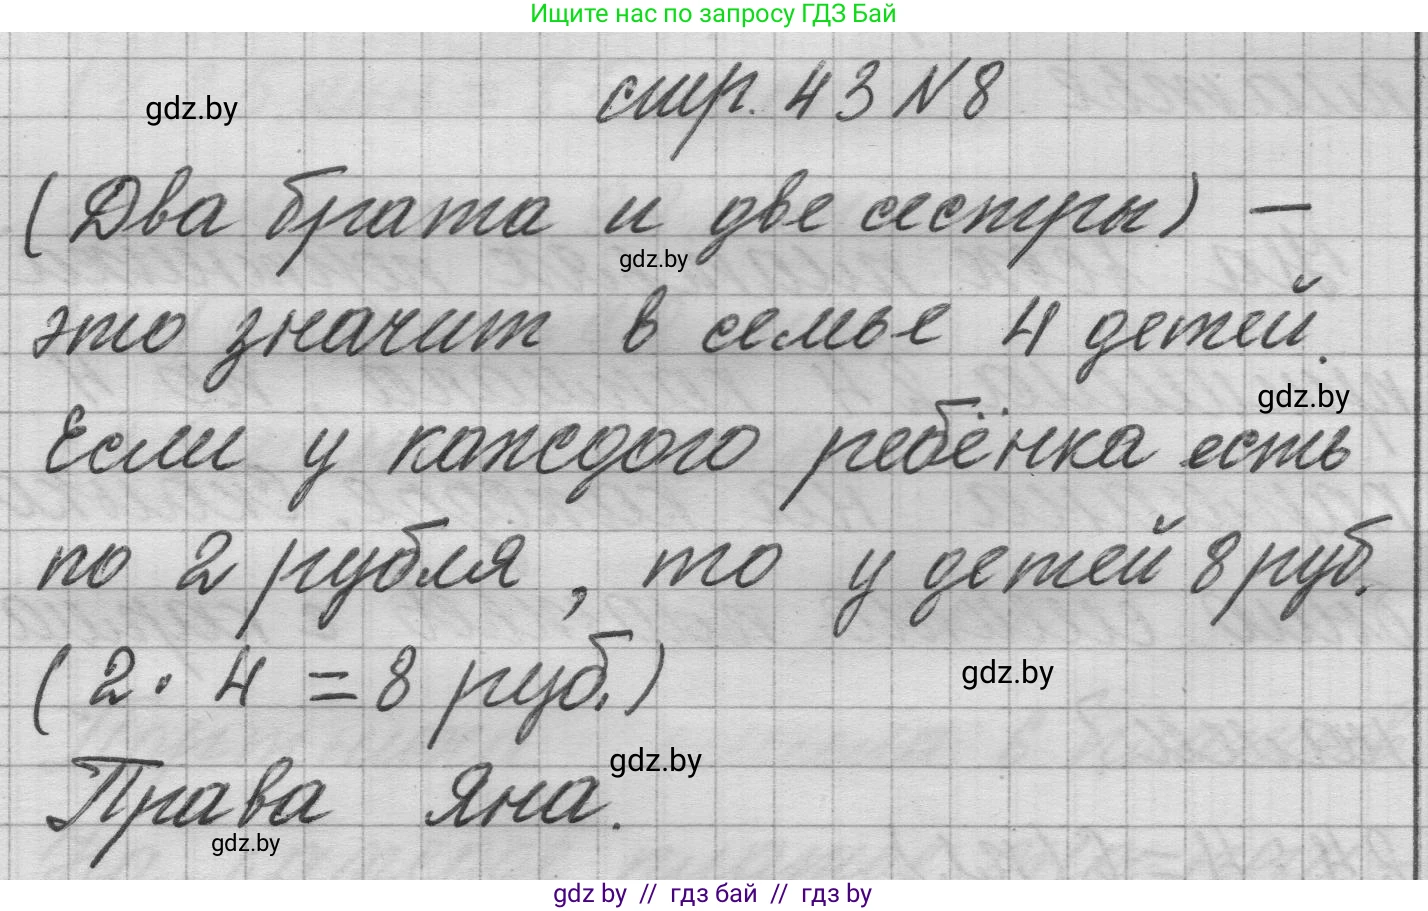 Ищите нас по запросу ГДЗ Бай
стр. 43 N 8
gdz.by
(Два брата и две сестры) –
gdz.by
это значит в семье 4 детей.
gdz.by
Если у каждого ребёнка есть
по 2 рубля, то у детей 8 руб.
(2 · 4 = 8 руб.)
gdz.by
gdz.by
Права Яна.
gdz.by
gdz by // гдз бай // гдз by